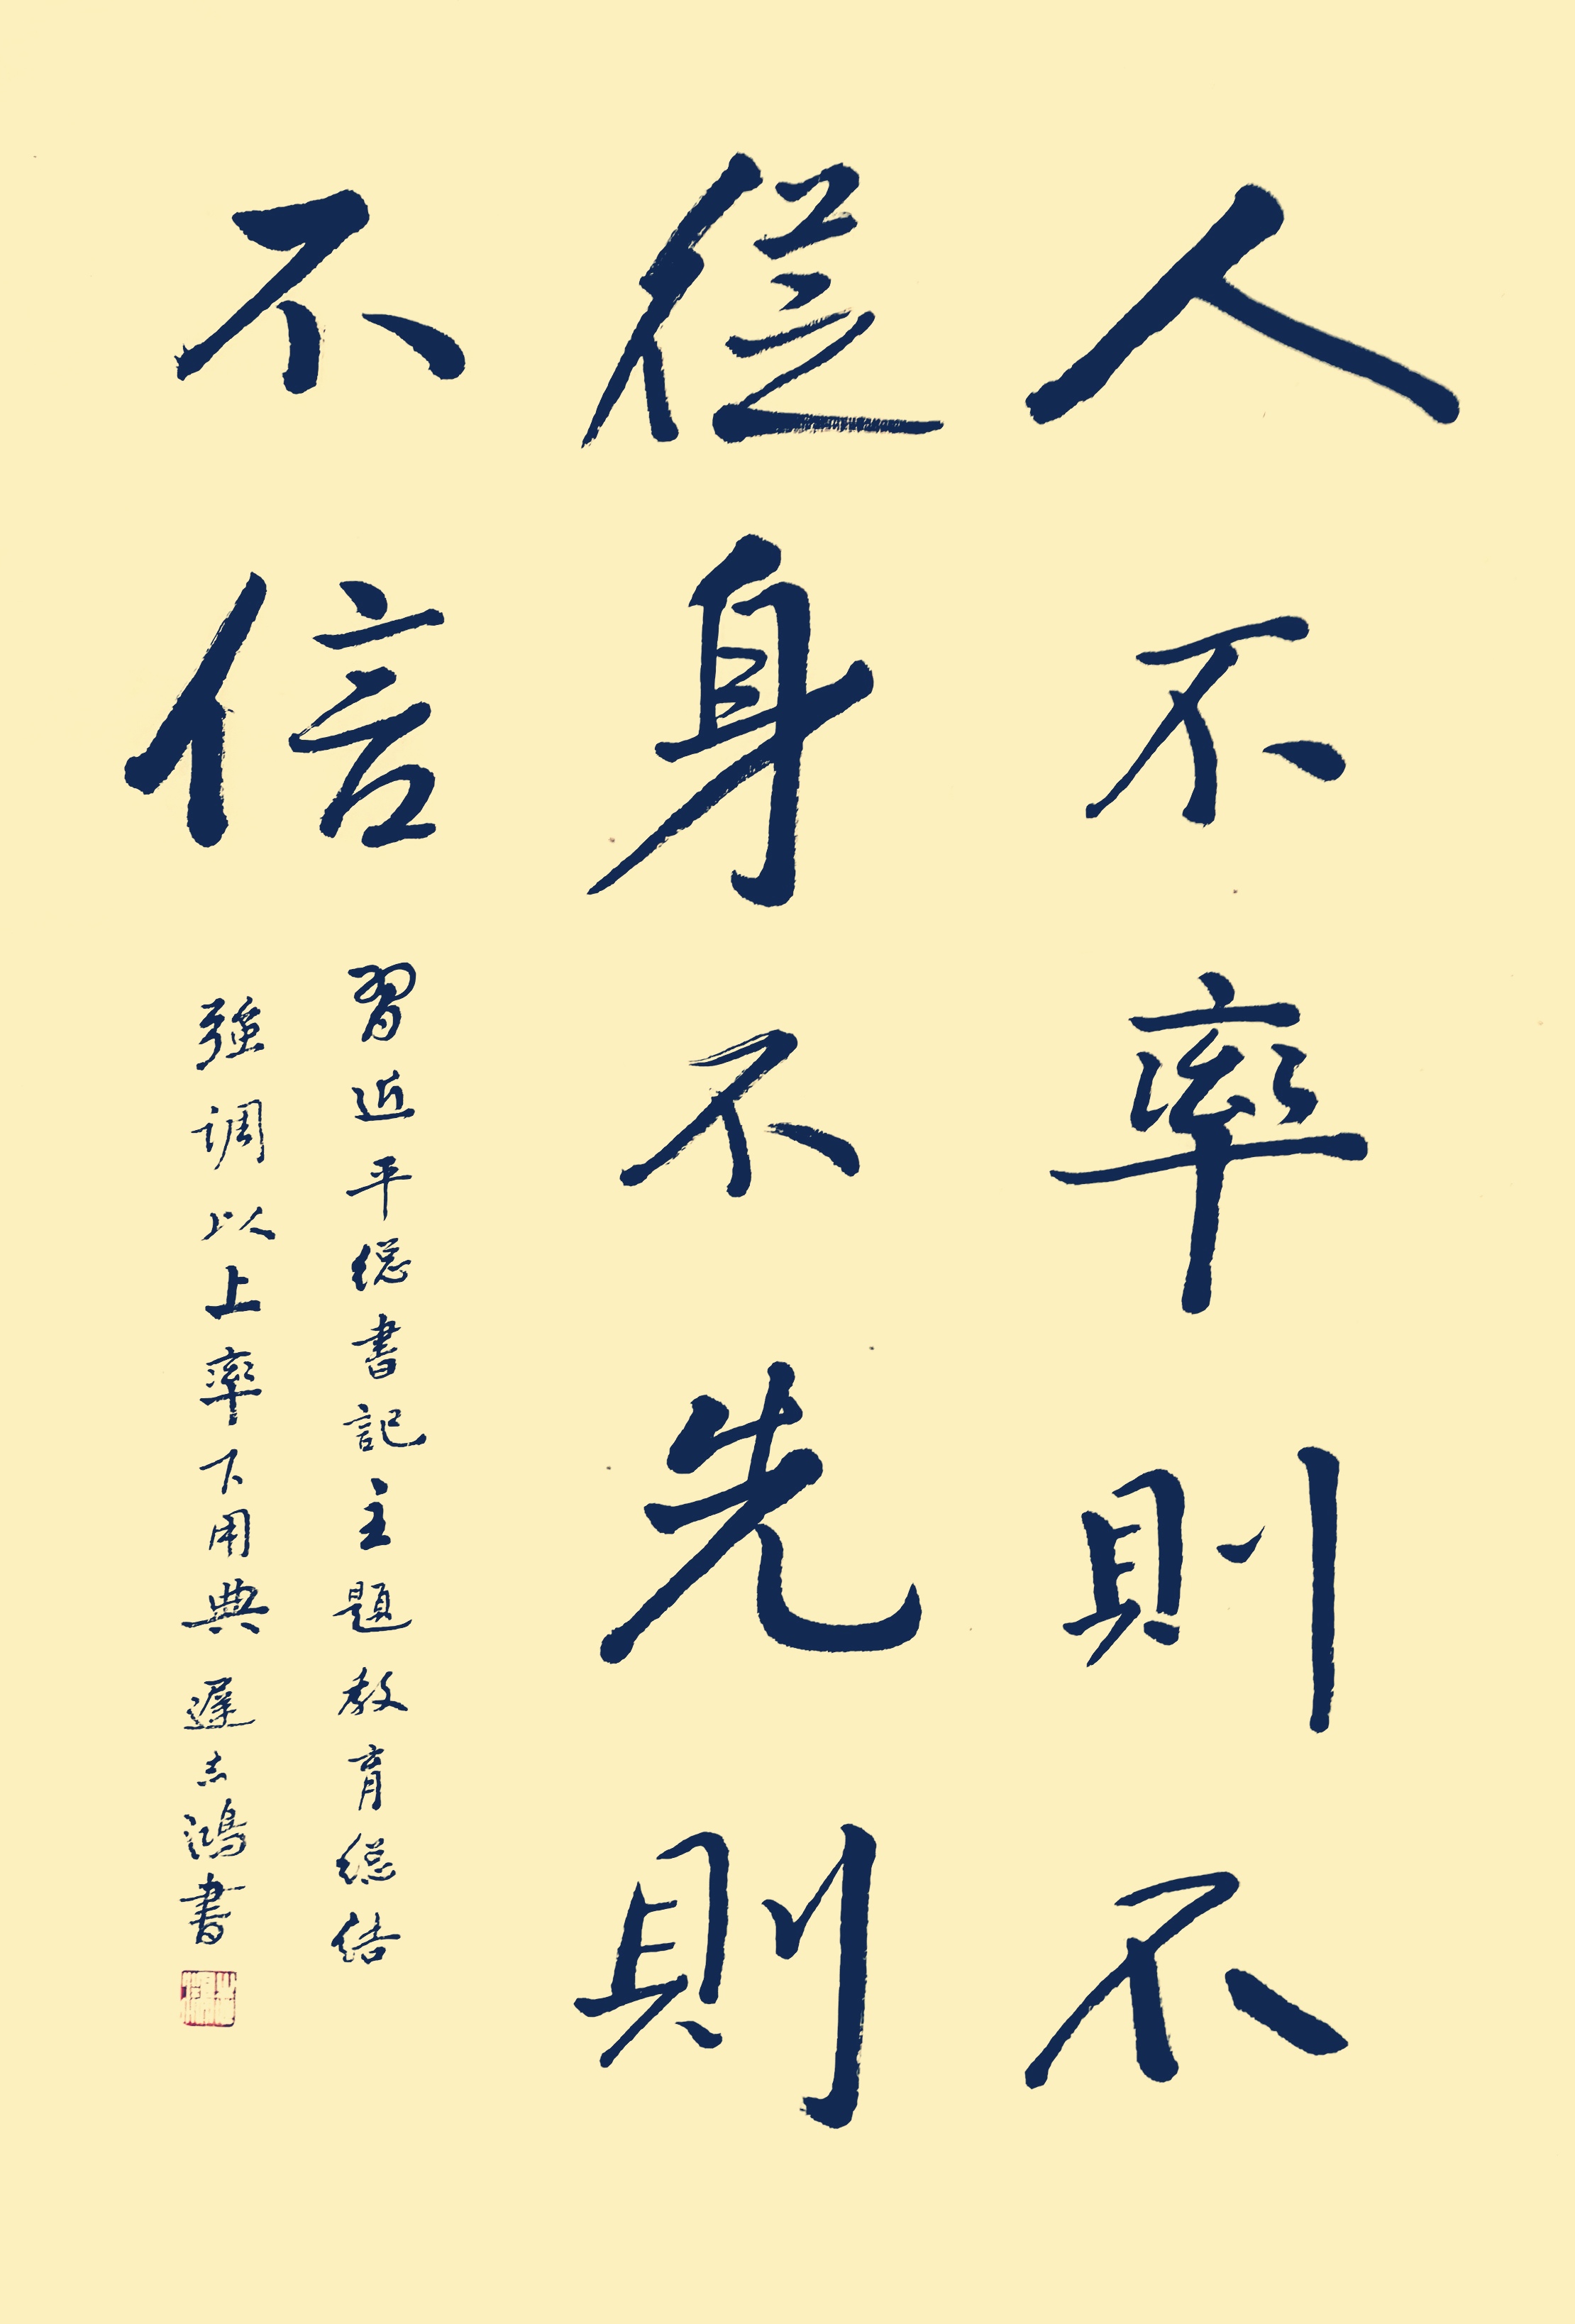 人不率則不
從身不先則
不信
習近平総書記主題教育総结
強调以上率下用典 遲志鴻書